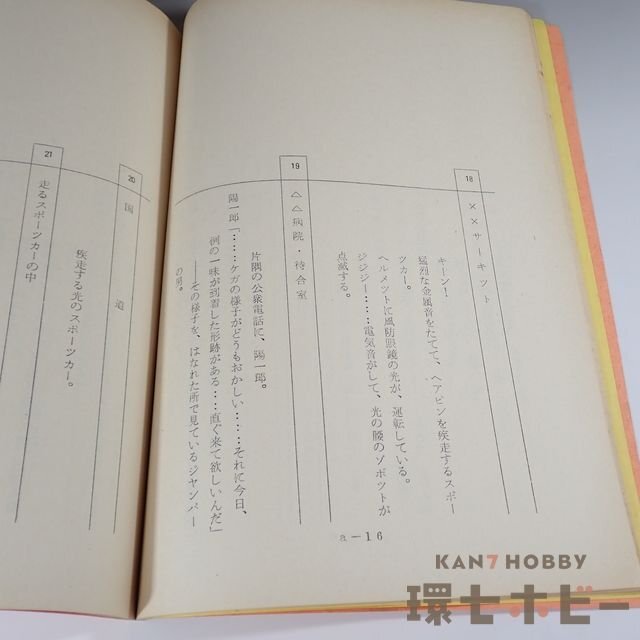 18
××サーキット
キーン！
猛烈な金属音をたてて、ヘアピンを疾走するスポー
ツカー。
ヘルメットに風防眼鏡の光が、運転している。
ジジジー……電気音がして、光の腰のゾボットが
点滅する。
19
△△病院・待合室
片隅の公衆電話に、陽一郎。
陽一郎「……ケガの様子がどうもおかしい……それに今日、
例の一味が到着した形跡がある……直ぐ来て欲しいんだ」
――その様子を、はなれた所で見ているジャンパー
の男。
a－16
20
国道
疾走する光のスポーツカー。
21
走るスポーツカーの中
KAN7HOBBY
環七ホビー